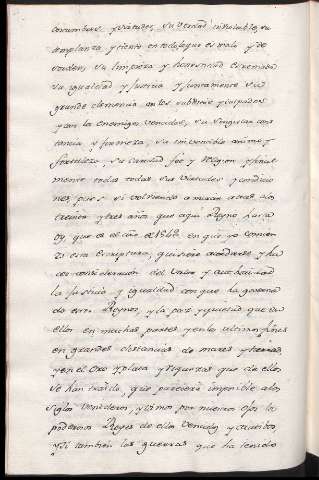 costumbres y virtudes, su verdad inviolable, su
templanza, y tiento en todo lo que es malo y de
vender, su limpieza y honestidad estremada
su igualdad y Justicia y juntamente su
grande clemencia en los subditos y culpados
y con los enemigos vencidos, su Religion cons
tancia y firmeza, su invencible animo y
fortaleza, su caridad fee y Religion y final
mente todas todas sus virtudes y condicio
nes, pues si volviendo a mirar atras los
treinta y tres años que aqui Reyno hasta
oy, que es el año de 1549 en que yo comien
zo esta escriptura, quisiere acordarse y ha
cer consideracion del valor y autoridad
la Justicia y igualdad con que ha governa
do estos Reynos, y la paz y quietud que en
ellos en muchas partes y en los ultimos fines
en grandes distancias de mares y tierras,
y en el Oro y plata y Riquezas que de ellos
se han traido, que parecera imposible a los
siglos venideros, y vimos por nuestros ojos los
poderosos Reyes de ellos vencidos y cautivos
y si tambien las guerras que ha tenido